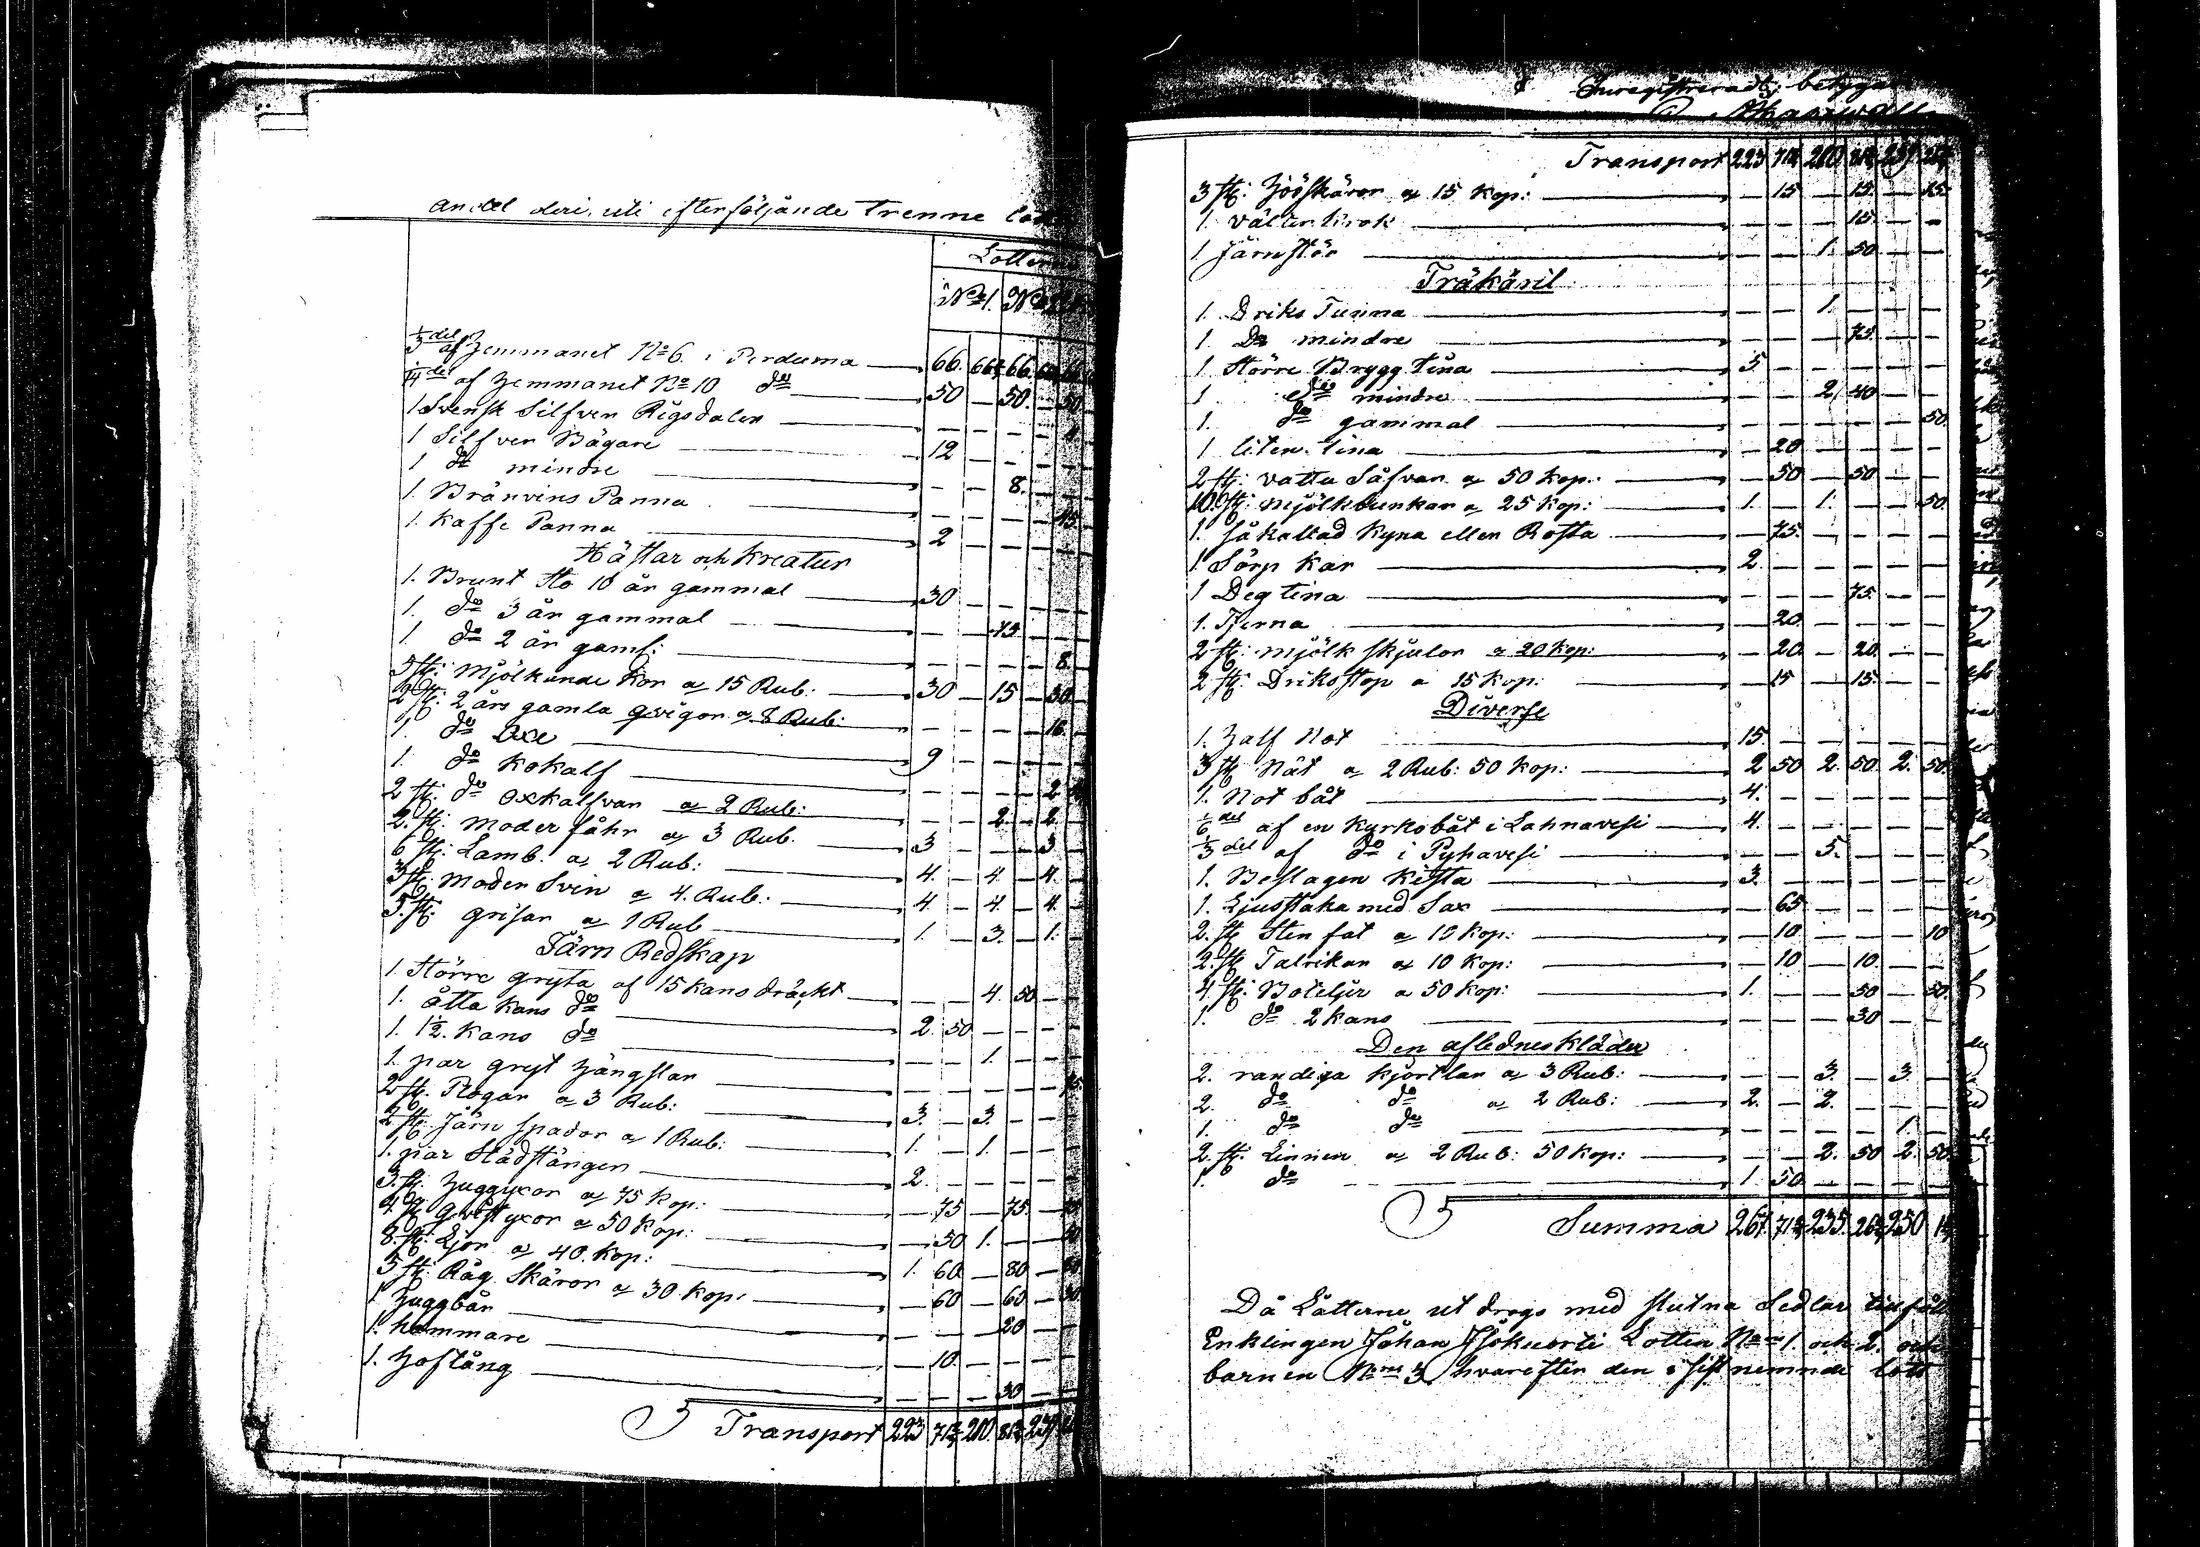 andel deri, uti efterföljande trenne
Lotterne
No 1. No 2
1/3 del af Hemmanet No 6. i Perduma 66. 66 2/3 66.
1/4 del af Hemmanet No 10 do 50 — 50. — 50.
1 Svensk Silfver Rigsdaler — — — —
1 Silfver Bägare 12 — — —
1 do mindre — — 8. —
1. Bränvins Panna — — — —
1. Kaffe Panna 2 — — —
Hästar och Kreatur
1. Brunt Sto 10 år gammal 30 — — —
1. do 3 år gammal — —
1 do 2 år gaml: — — — — 8.
5 st: Mjölkande Kor a 15 Rub: 30 — 15 — 30
2 st: 2 års gamla qvigor a 8 Rub: — — — — 16.
1. do Oxe 9 — — —
1. do Kokalf — — — — 2
2 st: do oxkalfvar a 2 Rub: — — 2. — 2.
2. st: moder fåhr a 3 Rub. 3 — — — 3
6 st: Lamb. a 2 Rub: 4. — 4 — 4.
3 st: moder Svin a 4. Rub: 4 — 4. — 4.
5. st: grisar a 1 Rub 1. — 3. — 1.
Järn Redskap
1. Större gryta af 15 kans dräckt — — 4. 50 —
1. åtta kans do 2. 50 — — —
1. 1 1/2. kans do — — 1. — —
1. par gryt hängslar — — — —
2 st. Plogar a 3 Rub: 3. — 3. — —
2 st: Järn spador a 1 Rub: 1. — 1. — —
1. par Städstänger 2. — — — —
3. st. Huggyxor a 75 kop: — 75 — 75. —
4 st qvistyxor a 50 kop: — 50 1. — —
8. st: Ljor a 40. kop: 1. 60. — 80 —
5 st: Råg Skäror a 30 kop: — 60 — 60 — 30
1 Huggbår — — — 20 —
1. hammare — 10. — — —
1. Hoftång — — — 30 —
Transport 223 71 2/3 210. 81 2/3 239
Inregistreradt; betygar
Transport 223 71 2/3 210. 81 2/3 239
3 st: Höskäror a 15 kop: — 15 — 15. — 15.
1. välter krok — — — 15. — —
1 Järnstör — — 1. 50 — —
Träkäril
1. Driks Tunna — — 1. — — —
1. Do mindre — — — 75. — —
1. Större Brygg tina 5 — — — — —
1 do mindre — — 2. 40 — —
1. do gammal — — — — — 50.
1 liten tina — 20 — — — —
2 st: vattu Såfvar a 50 kop.: — 50 — 50. — —
10. st: mjölkbunkar a 25 kop: 1. — 1. — — 50.
1. så kallad Kyna eller Rosta — 75. — — — —
1 Sörp kar 2. — — — — —
1 Deg tina — — — 75. — —
1. Tjerna — 20. — — — —
2 st: mjölk skjulor a 20 kop: — 20. — 20. — —
2 st: Driksstop a 15 kop: — 15 — 15. — —
Diverse
1. Half Not 15. — — — — —
3 st: Nät a 2 Rub: 50 kop: 2 50 2. 50. 2. 50
1. Not båt 4. — — — — —
1/6 del af en kyrkobåt i Lahnavesi 4. — — — — —
1/3 del af do i Pyhavesi — — 5. — — —
1. Beslagen Kista 3. — — — — —
1. Ljusstaka med Sax — 65 — — — —
2. st Sten fat a 10 kop: — 10 — — — 10
2. st Talrikar a 10 kop: — 10 — 10. — —
4. st: Boteljer a 50 kop: 1. — — 50 — 50.
1. do 2 kans — — — 30 — —
Den aflednes kläder
2. randiga kjortlar a 3 Rub: — — 3. — 3 —
2. do do a 2 Rub: 2. — 2. — — —
1. do do — — — — 1. —
2. st. Linner a 2 Rub: 50 kop: — — 2. 50 2. 50.
1. do 1 50 — — — —
Summa 267. 71 2/3 235. 26 2/3 250
Då Lotterne ut drogs med slutna Sedlar tillföll
Enklingen Johan Lotten No 1. och 2. och
barnen No 3. hvarefter den i sist nemnde lott